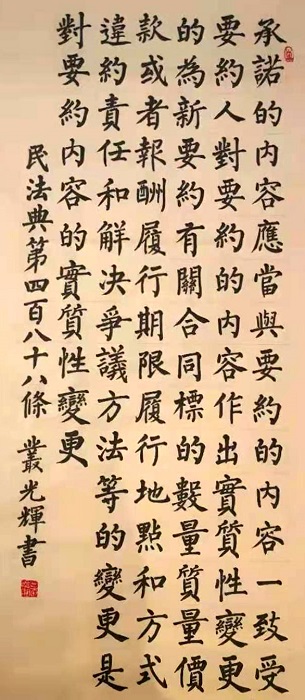 承諾的内容應當與要約的内容一致受
要約人對要約的内容作出實質性變更
的為新要約有關合同標的數量質量價
款或者報酬履行期限履行地點和方式
違約責任和解决爭議方法等的變更是
對要約内容的實質性變更
民法典第四百八十八條 叢光輝書